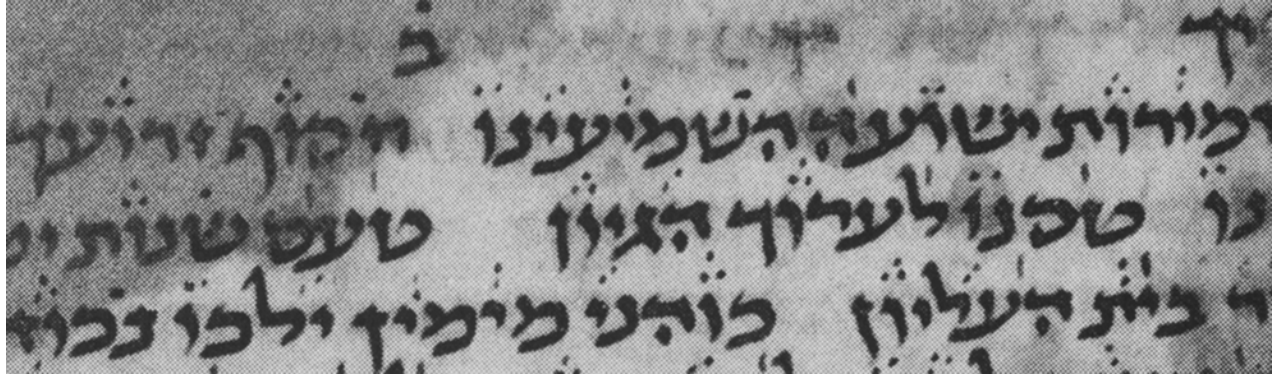 ב
זמירות ישועה השמיעינו תקוף זרועך
טכנו לערוך הגיון טעם שנות
בית העליון כוהני מימין ילכו